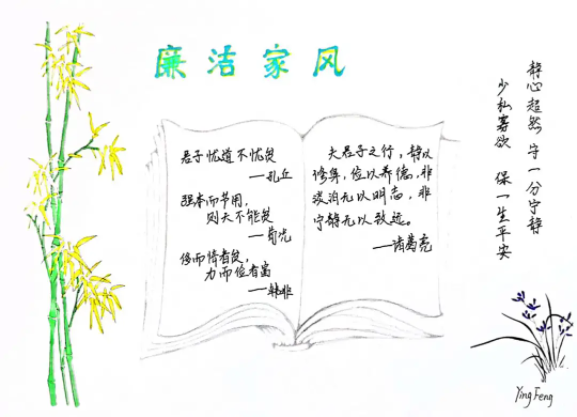 廉洁家风
静心超然 守一分宁静
少私寡欲 保一生平安
君子忧道不忧贫
——孔丘
强本而节用,
则天不能贫
——荀况
侈而惰者贫,
力而俭者富
——韩非
夫君子之行,静以
修身,俭以养德,非
淡泊无以明志,非
宁静无以致远。
——诸葛亮
Ying Feng